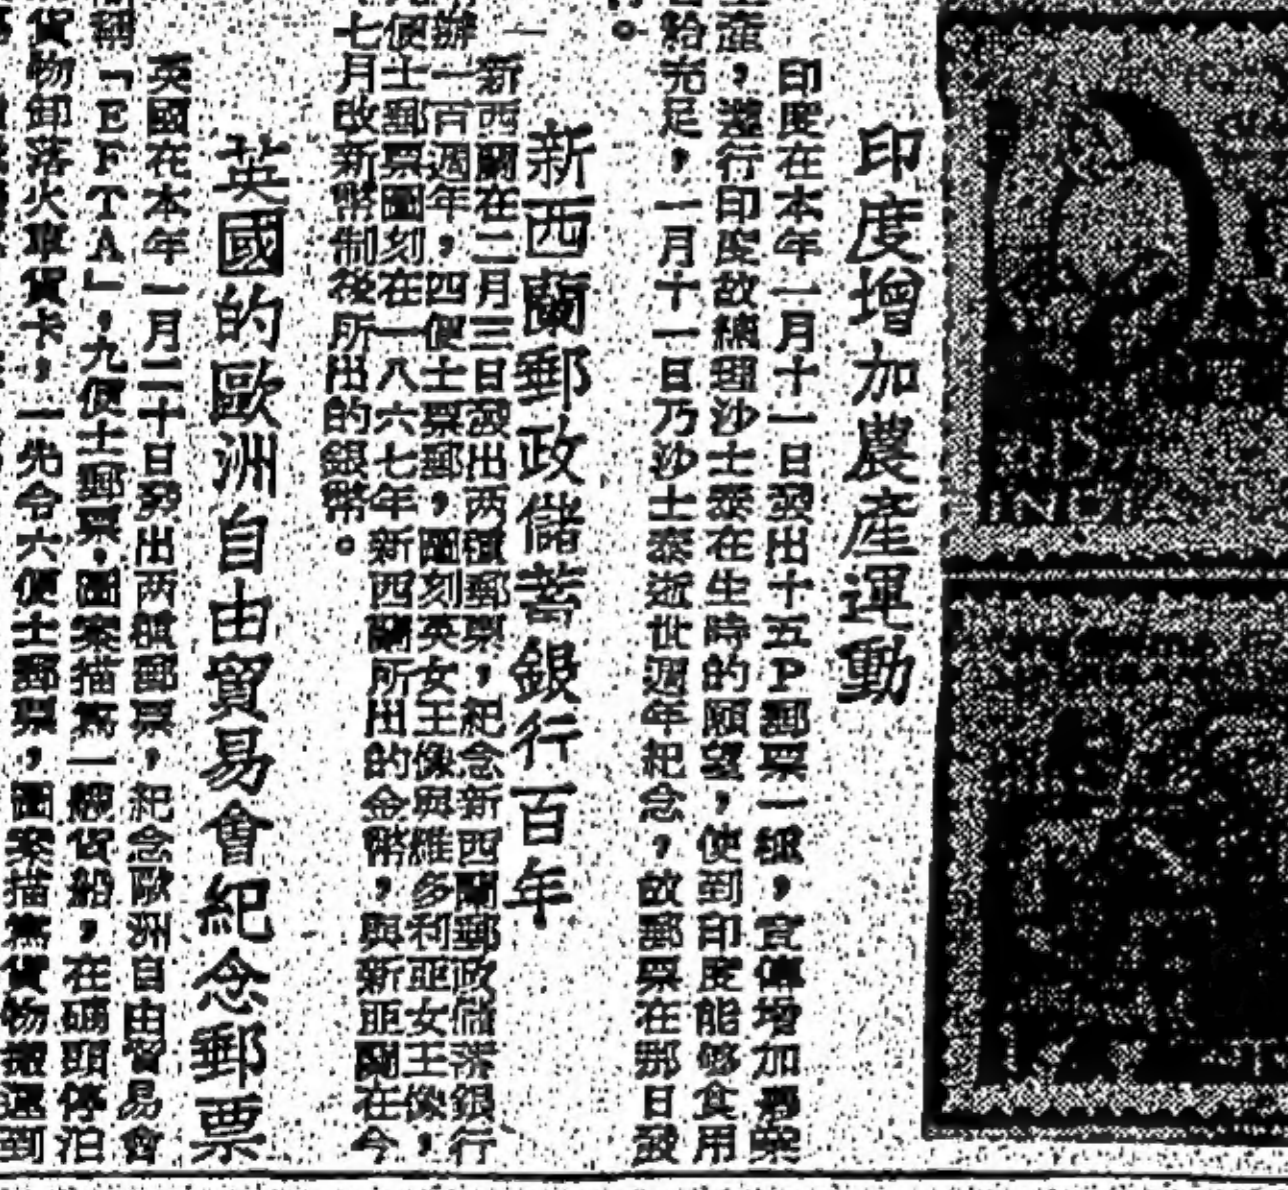 印度增加農產運動
印度在本年一月十一日發出十五P郵票一種，宣傳增加農業
產，遵行印度故總理沙士泰在生時的願望，使到印度能够食用
給充足，一月十一日乃沙士泰逝世週年紀念，故郵票在那日發
。
新西蘭郵政儲蓄銀行百年
新西蘭在二月三日發出两種郵票，紀念新西蘭郵政儲蓄銀行
辦一百週年，四便士票郵，圖刻英女王像與維多利亞女王像，
便士郵票圖刻在一八六七年新西蘭所出的金幣，與新西蘭在今
七月啟新幣制後所出的銀幣。
英國的歐洲自由貿易會紀念郵票
英國在本年一月二十日發出两種郵票，紀念歐洲自由貿易會
稱「EFTA」，九便士郵票，圖案描寫一艘貨船，在碼頭停泊
貨物卸落火車貨卡，一先令六便士郵票，圖案描寫貨物搬運到
INDIA